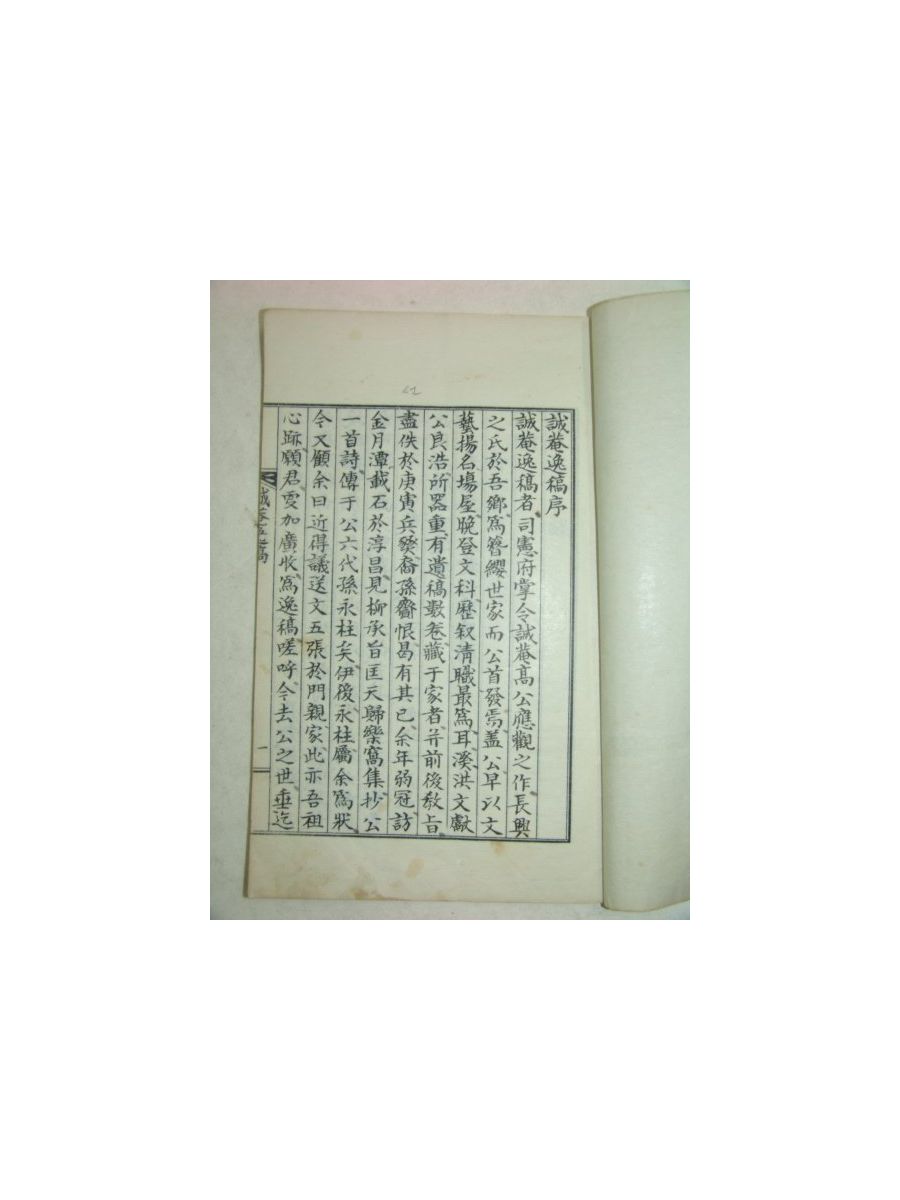 誠菴逸稿序
誠菴逸稿者司憲府掌令誠菴高公應觀之作長興
之氏於吾鄉爲簪纓世家而公首發焉盖公早以文
藝揚名場屋晚登文科歷敘清職最爲耳溪洪文獻
公良浩所器重有遺稿數卷藏于家者并前後教旨
盡佚於庚寅兵燹裔孫齎恨曷有其已余年弱冠訪
金月潭載石於淳昌見柳承旨匡天歸樂窩集抄公
一首詩傳于公六代孫永柱矣伊後永柱屬余爲狀
今又顧余曰近得議送文五張於門親家此亦吾祖
心跡願君更加廣收爲逸稿嗟呼今去公之世垂迄
誠菴逸稿
一